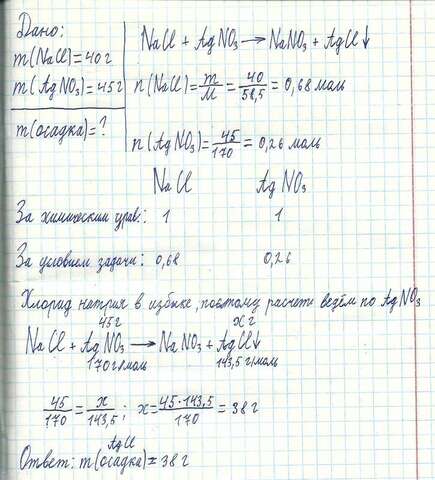 Дано:
m(NaCl)=40г
m(AgNO₃)=45г
m(осадка)=?
NaCl + AgNO₃ → NaNO₃ + AgCl↓
n(NaCl)=m/M=40/58,5=0,68 моль
n(AgNO₃)=45/170=0,26 моль
NaCl AgNO₃
За химическим урав.: 1 1
За условием задачи: 0,68 0,26
Хлорид нетрия в избыке, поэтому расчет везём по AgNO₃
45г xг
NaCl + AgNO₃ → NaNO₃ + AgCl↓
170г/моль 143,5г/моль
45/170=x/143,5; x=45·143,5/170=38г
AgCl
Ответ: m(осадка)=38г